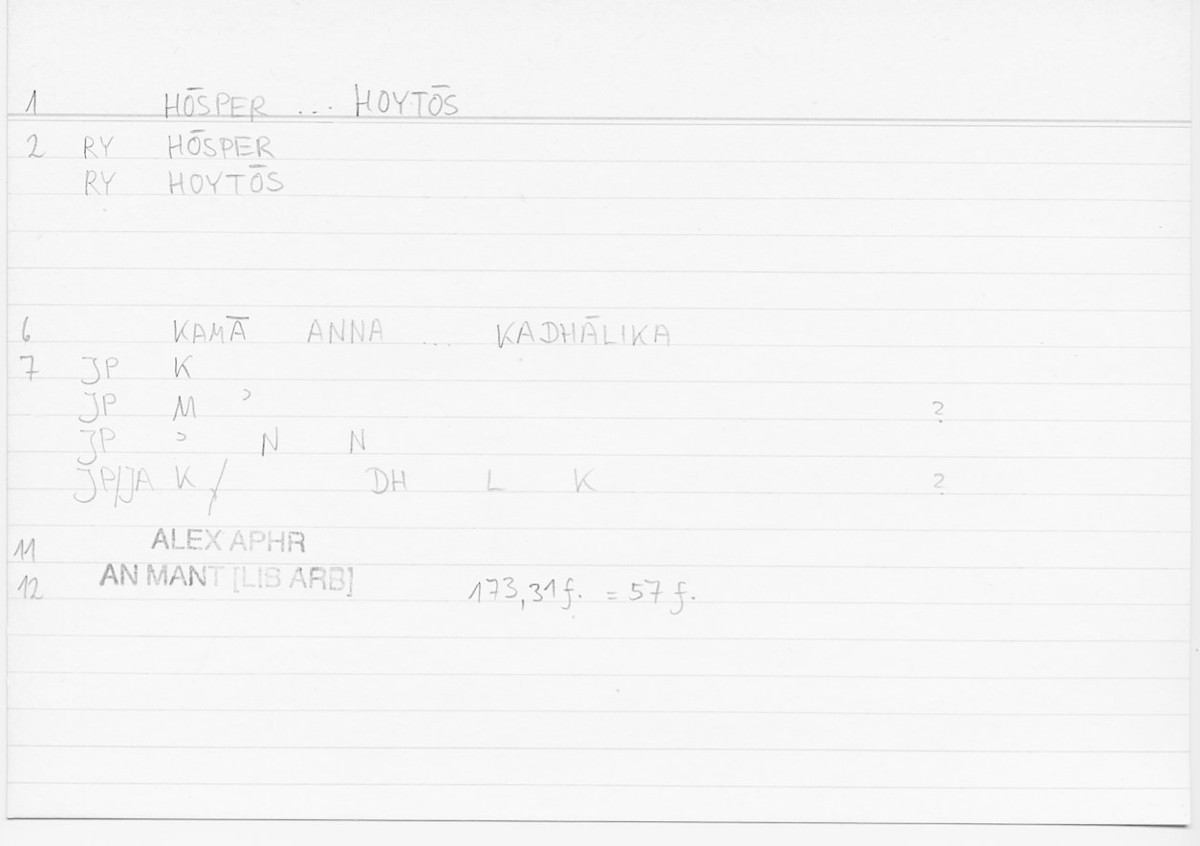 1 HŌSPER ... HOYTŌS
2 RY HŌSPER
RY HOYTŌS
6 KAMĀ ANNA ... KADHĀLIKA
7 JP K
JP M ʾ ?
JP ʾ N N
JP/JA K / DH L K ?
11 ALEX APHR
12 AN MANT [LIB ARB] 173,31 f. = 57 f.